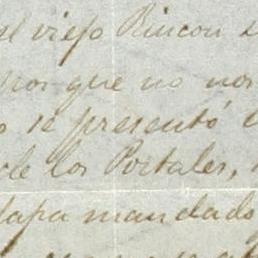 el viejo Rincon
por que no nos
se presentó
de los Portales,
tapa mandado